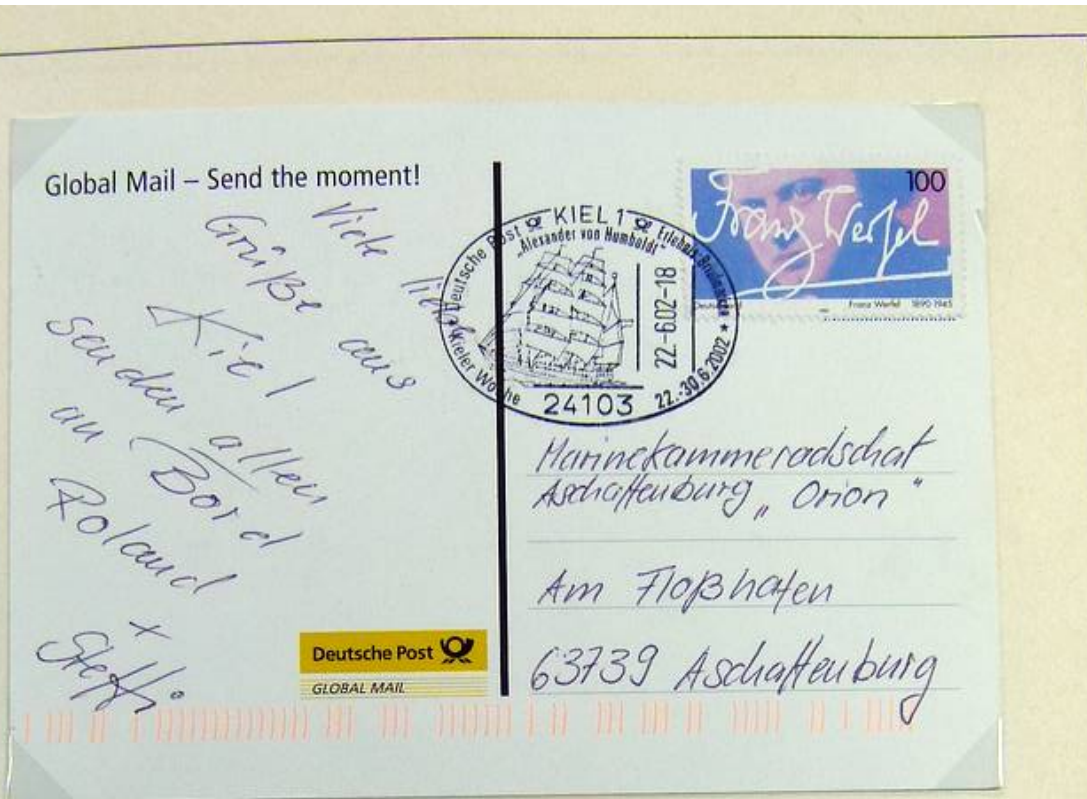 Global Mail – Send the moment!
Viele liebe
Grüße aus
Kiel
senden allen
an Bord
Roland
+
Steffi
Deutsche Post
GLOBAL MAIL
Deutsche Post KIEL 1 Erlebnis: Briefmarken
"Alexander von Humboldt"
22.-6.02-18
* Kieler Woche
24103
22.-30.6.2002 *
100
Franz Werfel
Deutschland
Franz Werfel 1890-1945
Marinekammeradschat
Aschaffenburg „Orion"
Am Floßhafen
63739 Aschaffenburg